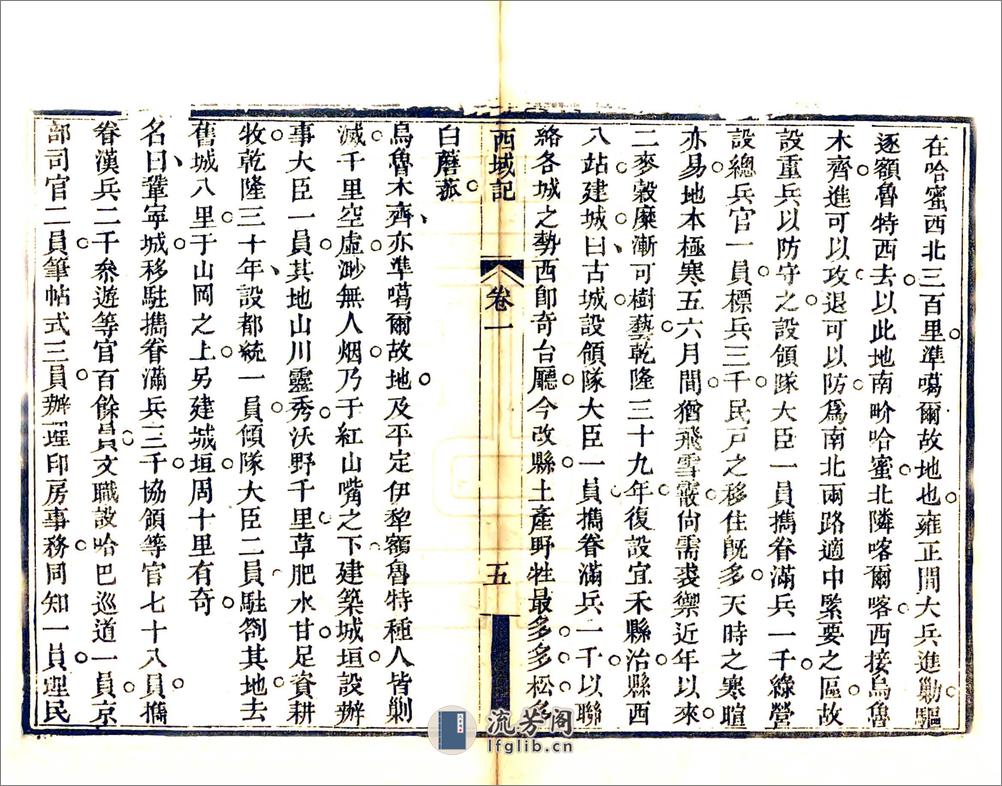 在哈蜜西北三百里準噶爾故地也雍正間大兵進勦驅
逐額魯特西去以此地南畍哈蜜北隣喀爾喀西接烏魯
木齊進可以攻退可以防爲南北兩路適中緊要之區故
設重兵以防守之設領隊大臣一員攜眷滿兵一千綠營
設總兵官一員標兵三千民戸之移住旣多天時之寒暄
亦易地本極寒五六月間猶飛雪霰尙需裘禦近年以來
二麥穀糜漸可樹藝乾隆三十九年復設宜禾縣治縣西
八站建城曰古城設領隊大臣一員攜眷滿兵一千以聯
絡各城之勢西卽奇台廳今改縣土產野牲最多多松多
西域記
卷一
五
白蘑菰
烏魯木齊亦準噶爾故地及平定伊犂額魯特種人皆剿
滅千里空虛渺無人烟乃于紅山嘴之下建築城垣設辦
事大臣一員其地山川靈秀沃野千里草肥水甘足資耕
牧乾隆三十年設都統一員傾隊大臣二員駐劄其地去
舊城八里于山岡之上另建城垣周十里有奇
名曰鞏寧城移駐攜眷滿兵三千協領等官七十八員攜
眷漢兵二千叅遊等官百餘員文職設哈巴巡道一員京
部司官二員筆帖式三員辦理印房事務同知一員理民
流芳閣
lfglib.cn